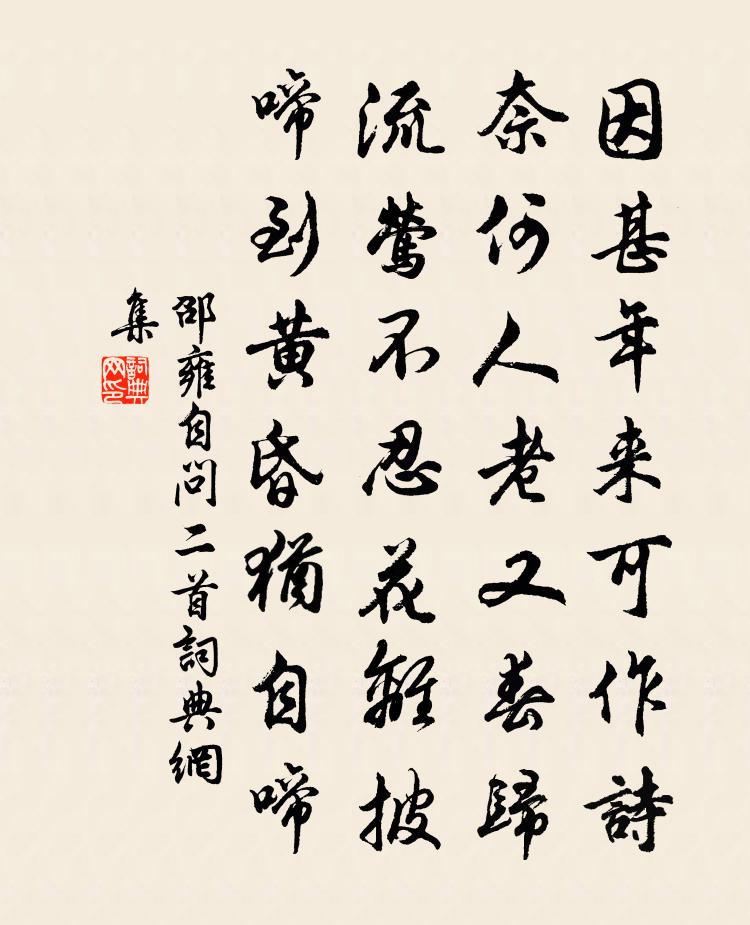 因甚年来可作詩
奈何人老又春歸
流鶯不忍花離披
啼到黄昏猶自啼
邵雍自問二首詞典網
集
詞典
网印